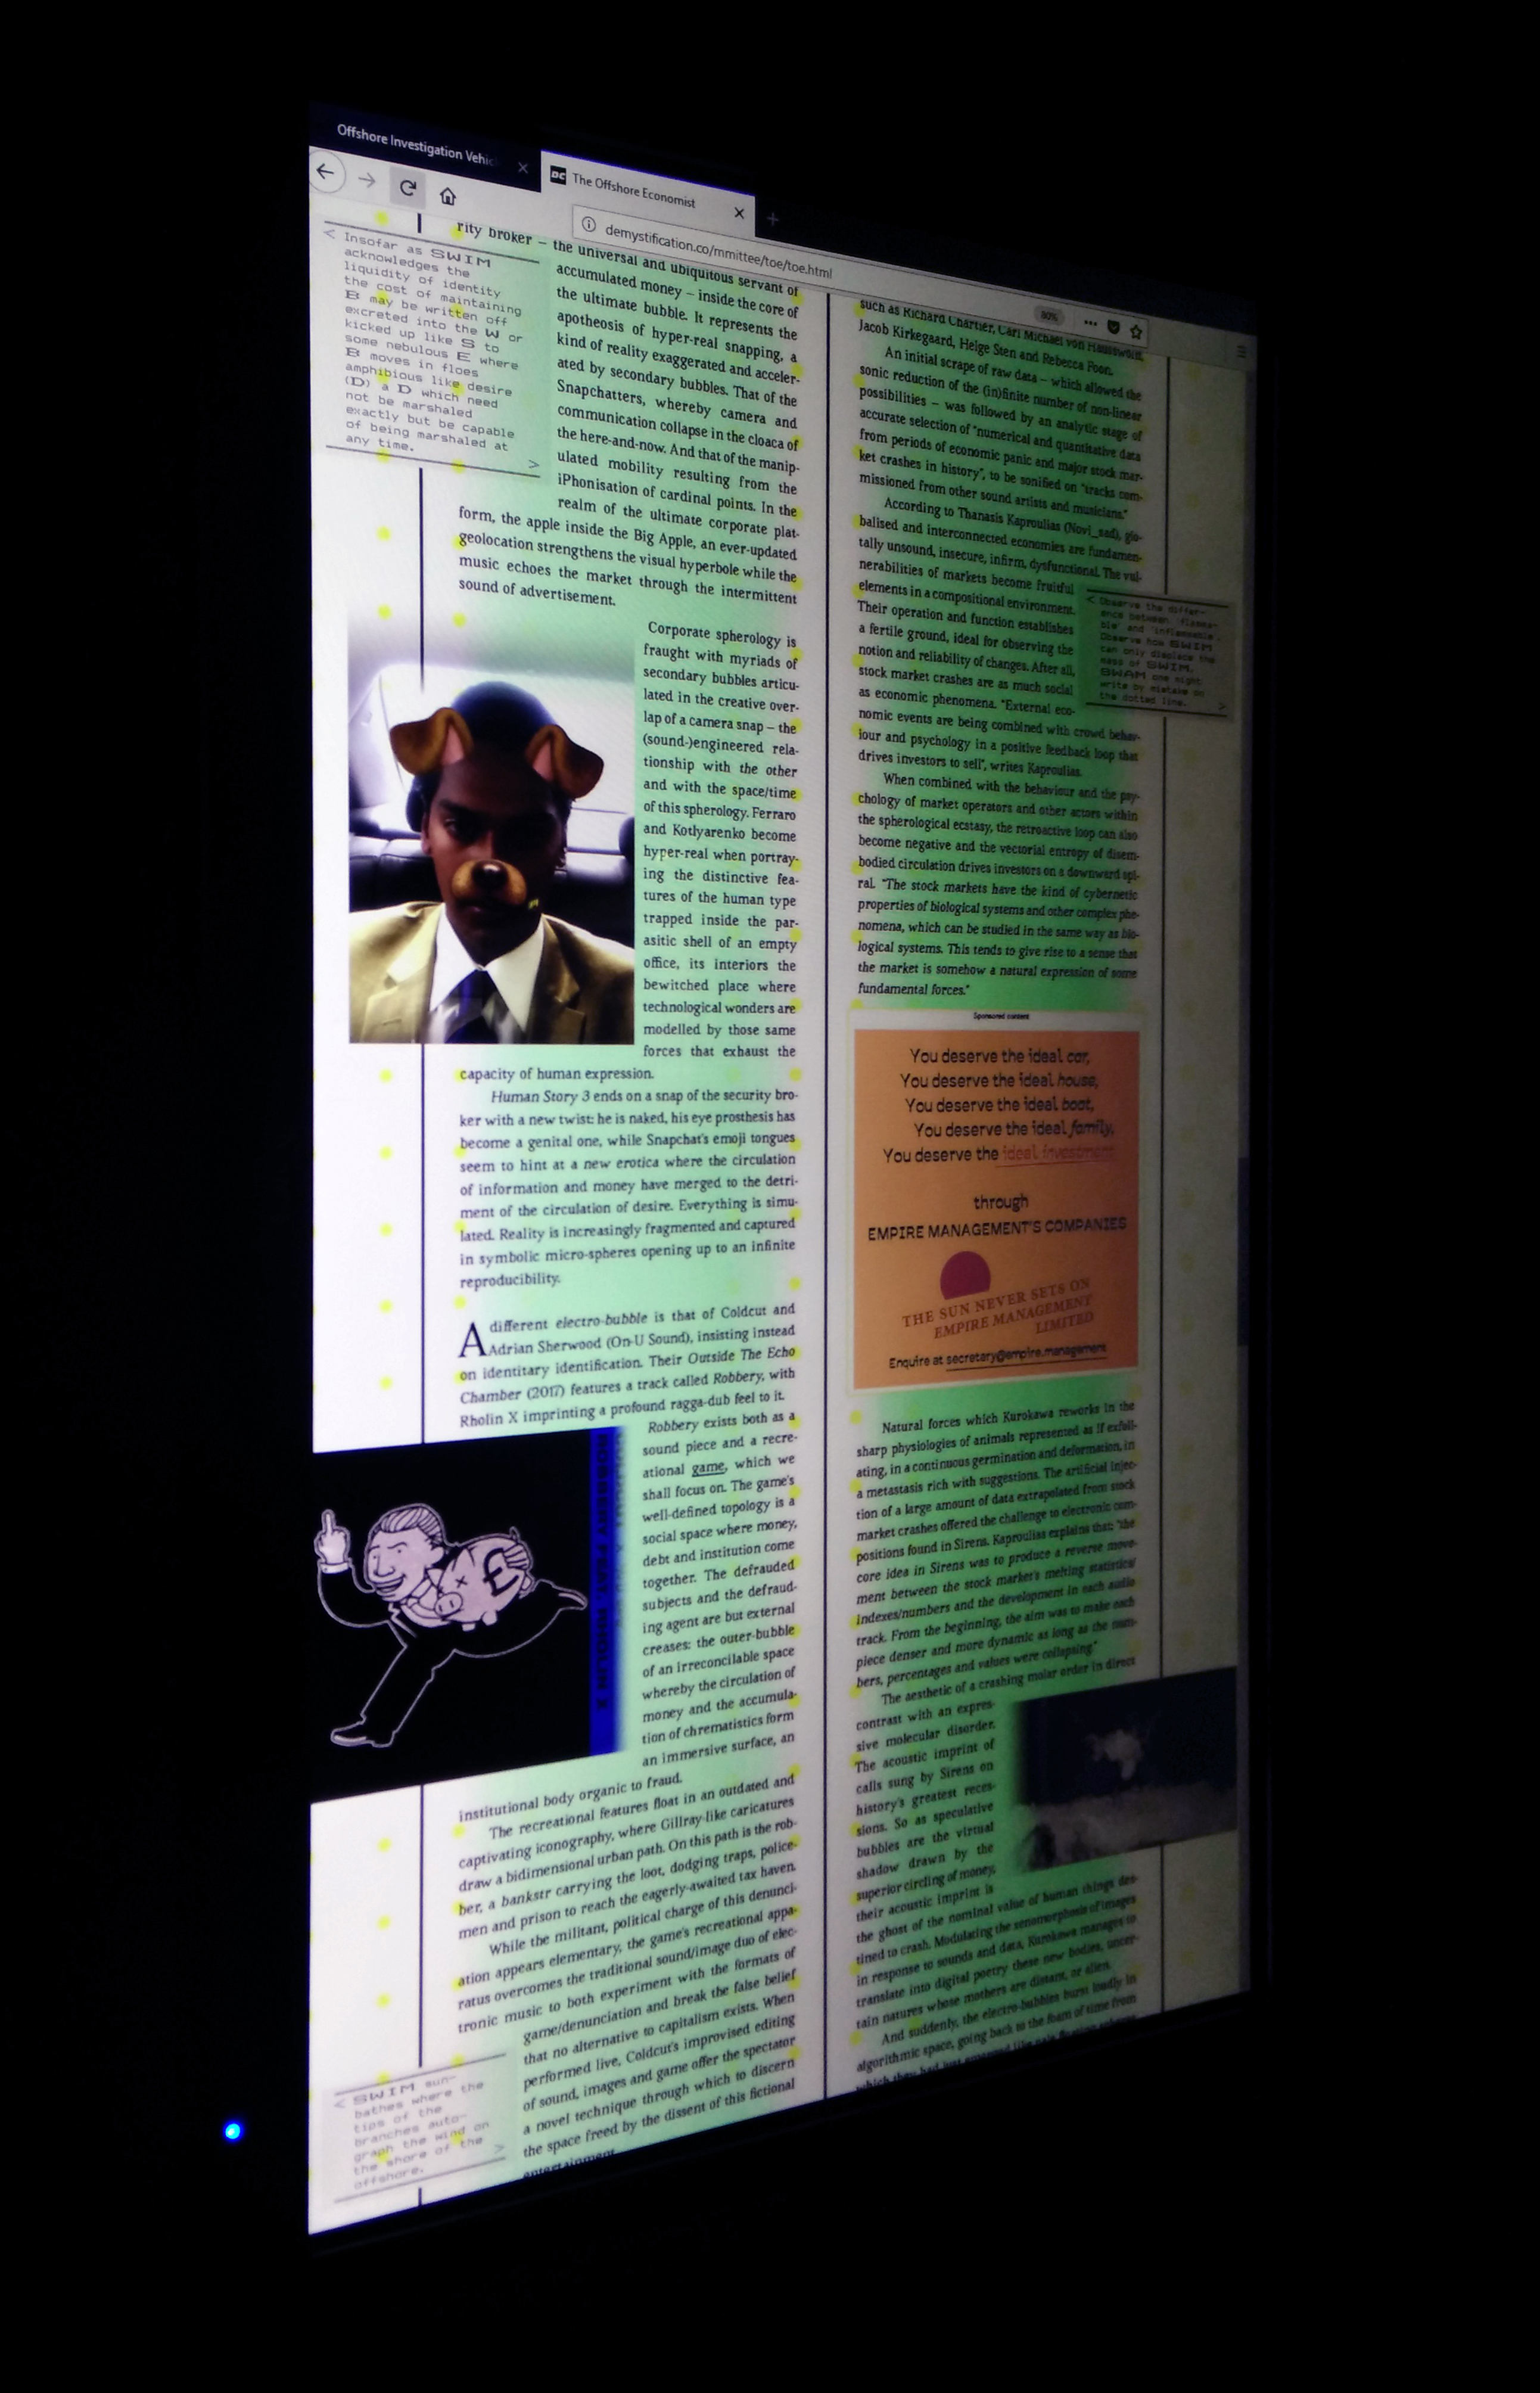 Offshore Investigation Vehic
The Offshore Economist
demystification.co/mmittee/toe/toe.html
80%
< Insofar as SWIM
acknowledges the
liquidity of identity
the cost of maintaining
B may be written off
excreted into the W or
kicked up like S to
some nebulous E where
B moves in floes
amphibious like desire
(D) a D which need
not be marshaled
exactly but be capable
of being marshaled at
any time.
>
rity broker – the universal and ubiquitous servant of
accumulated money – inside the core of
the ultimate bubble. It represents the
apotheosis of hyper-real snapping, a
kind of reality exaggerated and acceler-
ated by secondary bubbles. That of the
Snapchatters, whereby camera and
communication collapse in the cloaca of
the here-and-now. And that of the manip-
ulated mobility resulting from the
iPhonisation of cardinal points. In the
realm of the ultimate corporate plat-
form, the apple inside the Big Apple, an ever-updated
geolocation strengthens the visual hyperbole while the
music echoes the market through the intermittent
sound of advertisement.
Corporate spherology is
fraught with myriads of
secondary bubbles articu-
lated in the creative over-
lap of a camera snap – the
(sound-)engineered rela-
tionship with the other
and with the space/time
of this spherology. Ferraro
and Kotlyarenko become
hyper-real when portray-
ing the distinctive fea-
tures of the human type
trapped inside the par-
asitic shell of an empty
office, its interiors the
bewitched place where
technological wonders are
modelled by those same
forces that exhaust the
capacity of human expression.
Human Story 3 ends on a snap of the security bro-
ker with a new twist: he is naked, his eye prosthesis has
become a genital one, while Snapchat's emoji tongues
seem to hint at a new erotica where the circulation
of information and money have merged to the detri-
ment of the circulation of desire. Everything is simu-
lated. Reality is increasingly fragmented and captured
in symbolic micro-spheres opening up to an infinite
reproducibility.
A different electro-bubble is that of Coldcut and
Adrian Sherwood (On-U Sound), insisting instead
on identitary identification. Their Outside The Echo
Chamber (2017) features a track called Robbery, with
Rholin X imprinting a profound ragga-dub feel to it.
Robbery exists both as a
sound piece and a recre-
ational game, which we
shall focus on. The game's
well-defined topology is a
social space where money,
debt and institution come
together. The defrauded
subjects and the defraud-
ing agent are but external
creases: the outer-bubble
of an irreconcilable space
whereby the circulation of
money and the accumula-
tion of chrematistics form
an immersive surface, an
institutional body organic to fraud.
The recreational features float in an outdated and
captivating iconography, where Gillray-like caricatures
draw a bidimensional urban path. On this path is the rob-
ber, a bankstr carrying the loot, dodging traps, police-
men and prison to reach the eagerly-awaited tax haven.
While the militant, political charge of this denunci-
ation appears elementary, the game's recreational appa-
ratus overcomes the traditional sound/image duo of elec-
tronic music to both experiment with the formats of
game/denunciation and break the false belief
that no alternative to capitalism exists. When
performed live, Coldcut's improvised editing
of sound, images and game offer the spectator
a novel technique through which to discern
the space freed by the dissent of this fictional
entertainment
ROBBERY FEAT. RHOLIN X
£
< SWIM sun-
bathes where the
tips of the
branches auto-
graph the wind on
the shore of the
offshore.
>
such as Richard Chartier, Carl Michael von Hausswolff,
Jacob Kirkegaard, Helge Sten and Rebecca Foon.
An initial scrape of raw data – which allowed the
sonic reduction of the (in)finite number of non-linear
possibilities – was followed by an analytic stage of
accurate selection of "numerical and quantitative data
from periods of economic panic and major stock mar-
ket crashes in history", to be sonified on "tracks com-
missioned from other sound artists and musicians."
According to Thanasis Kaproulias (Novi_sad), glo-
balised and interconnected economies are fundamen-
tally unsound, insecure, infirm, dysfunctional. The vul-
nerabilities of markets become fruitful
elements in a compositional environment.
Their operation and function establishes
a fertile ground, ideal for observing the
notion and reliability of changes. After all,
stock market crashes are as much social
as economic phenomena. "External eco-
nomic events are being combined with crowd behav-
iour and psychology in a positive feedback loop that
drives investors to sell", writes Kaproulias.
When combined with the behaviour and the psy-
chology of market operators and other actors within
the spherological ecstasy, the retroactive loop can also
become negative and the vectorial entropy of disem-
bodied circulation drives investors on a downward spi-
ral. "The stock markets have the kind of cybernetic
properties of biological systems and other complex phe-
nomena, which can be studied in the same way as bio-
logical systems. This tends to give rise to a sense that
the market is somehow a natural expression of some
fundamental forces."
< Observe the differ-
ence between 'flamma-
ble' and 'inflammable'.
Observe how SWIM
can only displace the
mass of SWIM.
SWAM one might
write by mistake on
the dotted line.
>
Sponsored content
You deserve the ideal car,
You deserve the ideal house,
You deserve the ideal boat,
You deserve the ideal family,
You deserve the ideal investment
through
EMPIRE MANAGEMENT'S COMPANIES
THE SUN NEVER SETS ON
EMPIRE MANAGEMENT
LIMITED
Enquire at secretary@empire.management
Natural forces which Kurokawa reworks in the
sharp physiologies of animals represented as if exfoli-
ating, in a continuous germination and deformation, in
a metastasis rich with suggestions. The artificial injec-
tion of a large amount of data extrapolated from stock
market crashes offered the challenge to electronic com-
positions found in Sirens. Kaproulias explains that: "the
core idea in Sirens was to produce a reverse move-
ment between the stock market's melting statistical
indexes/numbers and the development in each audio
track. From the beginning, the aim was to make each
piece denser and more dynamic as long as the num-
bers, percentages and values were collapsing."
The aesthetic of a crashing molar order in direct
contrast with an expres-
sive molecular disorder.
The acoustic imprint of
calls sung by Sirens on
history's greatest reces-
sions. So as speculative
bubbles are the virtual
shadow drawn by the
superior circling of money,
their acoustic imprint is
the ghost of the nominal value of human things des-
tined to crash. Modulating the xenomorphosis of images
in response to sounds and data, Kurokawa manages to
translate into digital poetry these new bodies, uncer-
tain natures whose mothers are distant, or alien.
And suddenly, the electro-bubbles burst loudly in
algorithmic space, going back to the foam of time from
which they had just